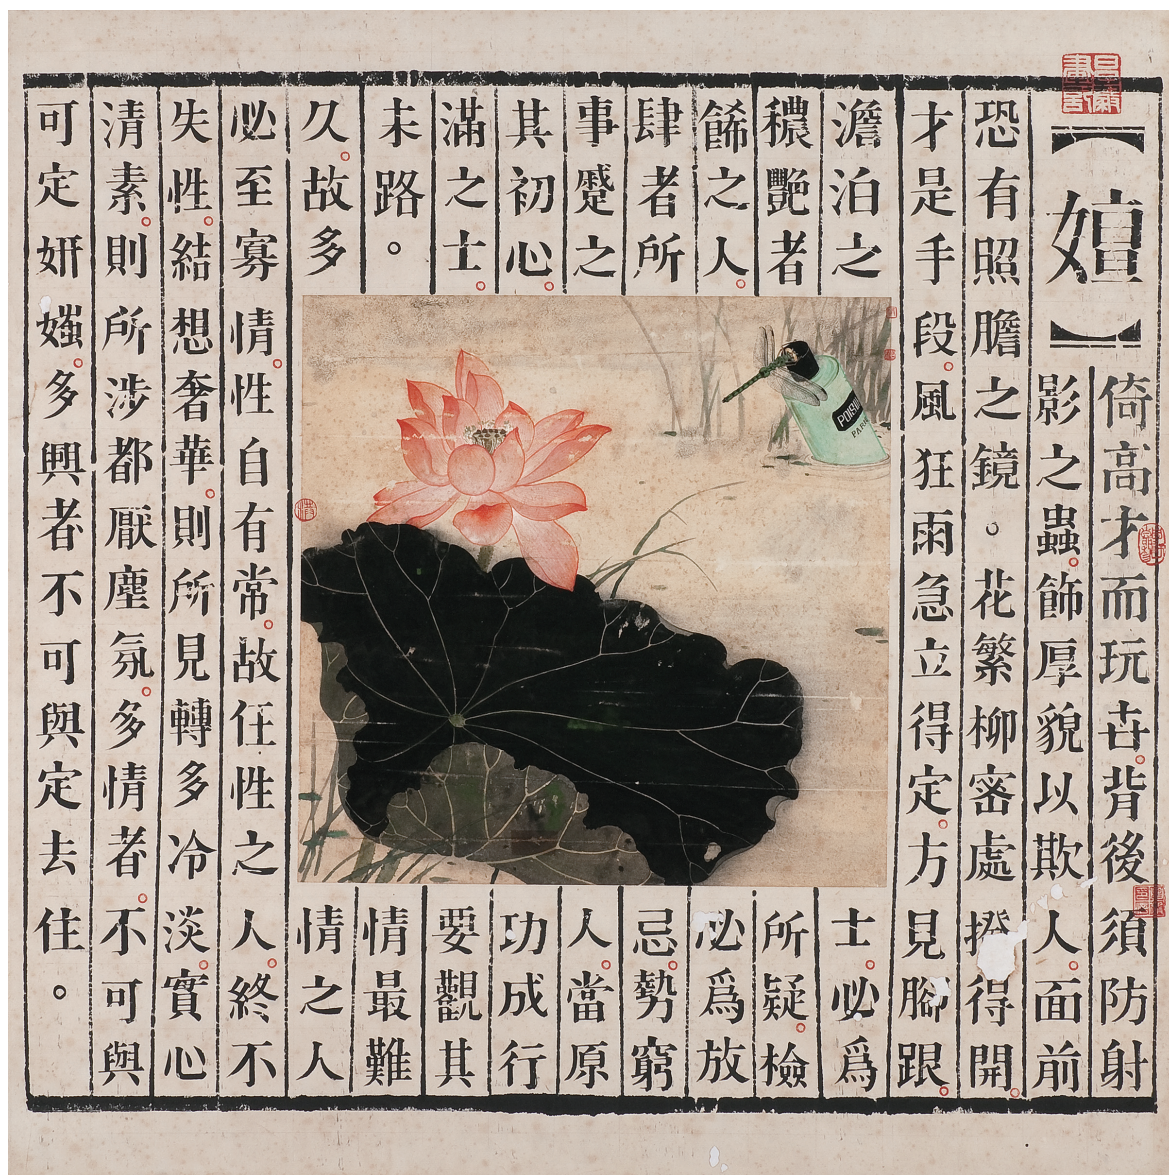 【嬗】
倚高才而玩卋。背後須防射
影之蟲。飾厚貌以欺人。面前
恐有照膽之鏡。花繁柳密處撥得開。
才是手段。風狂雨急立得定。方見腳跟。
澹泊之士。必爲
穠艷者所疑。檢
餙之人。必爲放
肆者所忌。勢窮
事蹙之人。當原
其初心。功成行
滿之士。要觀其
末路。情最難
久。故多情之人
必至寡情。性自有常。故任性之人。終不
失性。結想奢華。則所見轉多冷淡。實心
清素。則所涉都厭塵氛。多情者。不可與
可定妍媸。多興者不可與定去住。